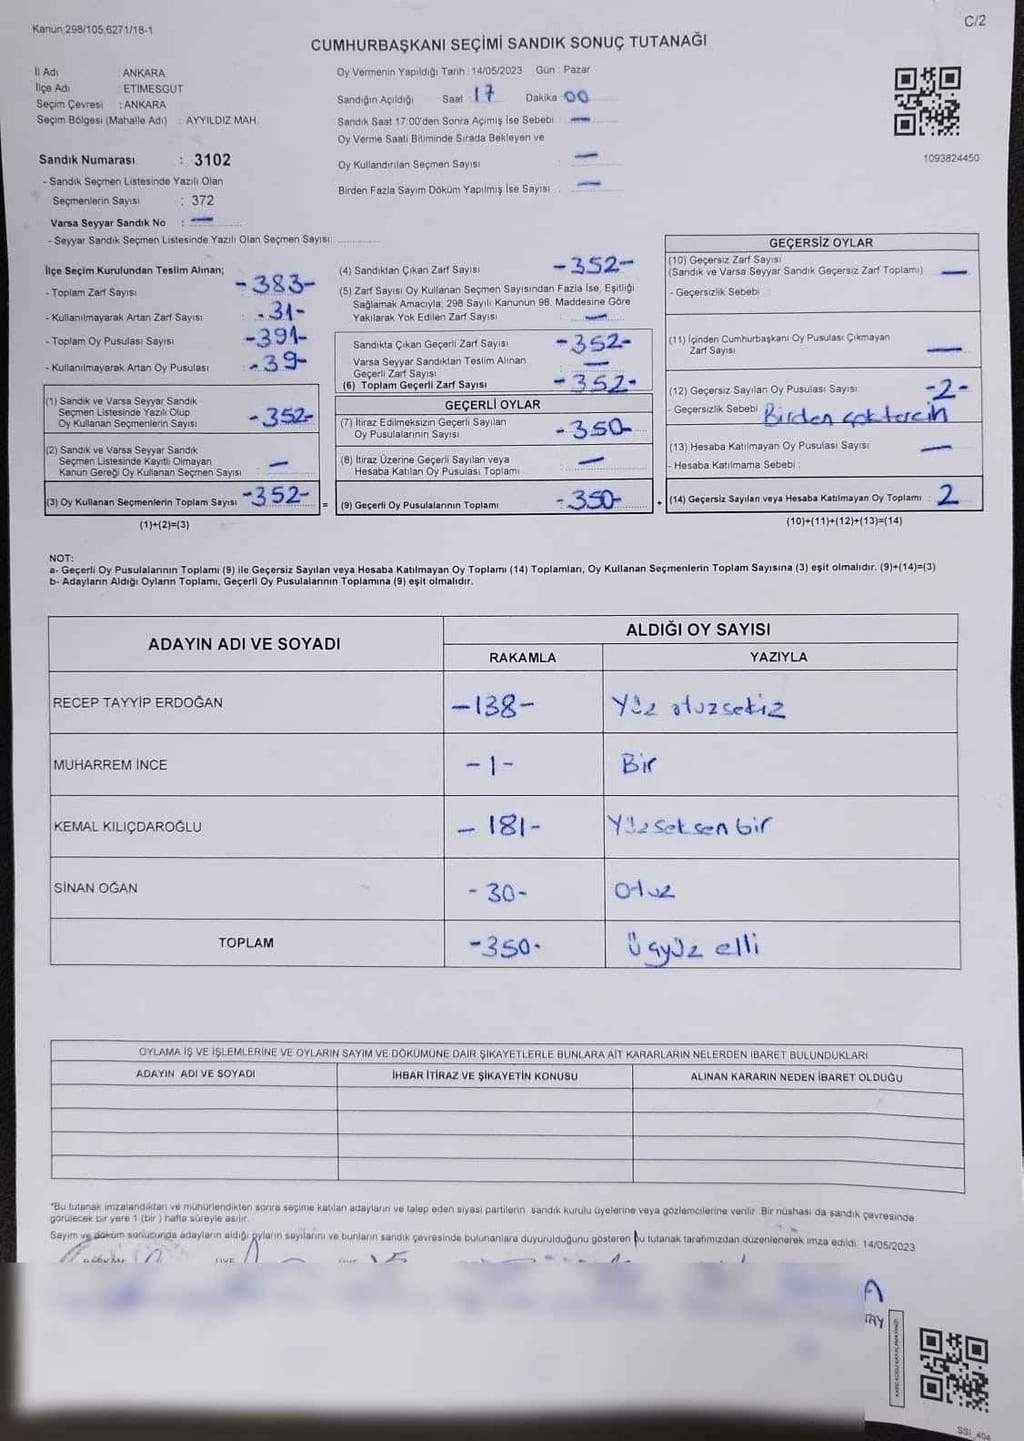 Kanun;298/105;6271/18-1
C/2
CUMHURBAŞKANI SEÇİMİ SANDIK SONUÇ TUTANAĞI
İl Adı : ANKARA
İlçe Adı : ETİMESGUT
Seçim Çevresi : ANKARA
Seçim Bölgesi (Mahalle Adı) : AYYILDIZ MAH.
Oy Vermenin Yapıldığı Tarih : 14/05/2023 Gün : Pazar
Sandığın Açıldığı Saat 17 Dakika 00
Sandık Saat 17:00'den Sonra Açımış İse Sebebi : —
Oy Verme Saati Bitiminde Sırada Bekleyen ve
Oy Kullandırılan Seçmen Sayısı —
Birden Fazla Sayım Döküm Yapılmış İse Sayısı : —
1093824450
Sandık Numarası : 3102
- Sandık Seçmen Listesinde Yazılı Olan
Seçmenlerin Sayısı : 372
Varsa Seyyar Sandık No : —
- Seyyar Sandık Seçmen Listesinde Yazılı Olan Seçmen Sayısı: ............
İlçe Seçim Kurulundan Teslim Alınan;
- Toplam Zarf Sayısı -383-
- Kullanılmayarak Artan Zarf Sayısı : -31-
- Toplam Oy Pusulası Sayısı -391-
- Kullanılmayarak Artan Oy Pusulası : -39-
(1) Sandık ve Varsa Seyyar Sandık
Seçmen Listesinde Yazılı Olup
Oy Kullanan Seçmenlerin Sayısı : -352-
(2) Sandık ve Varsa Seyyar Sandık
Seçmen Listesinde Kayıtlı Olmayan
Kanun Gereği Oy Kullanan Seçmen Sayısı : —
(3) Oy Kullanan Seçmenlerin Toplam Sayısı -352-
(1)+(2)=(3)
=
(4) Sandıktan Çıkan Zarf Sayısı -352-
(5) Zarf Sayısı Oy Kullanan Seçmen Sayısından Fazla İse, Eşitliği
Sağlamak Amacıyla; 298 Sayılı Kanunun 98. Maddesine Göre
Yakılarak Yok Edilen Zarf Sayısı : —
Sandıkta Çıkan Geçerli Zarf Sayısı -352-
Varsa Seyyar Sandıktan Teslim Alınan
Geçerli Zarf Sayısı —
(6) Toplam Geçerli Zarf Sayısı -352-
GEÇERLİ OYLAR
(7) İtiraz Edilmeksizin Geçerli Sayılan
Oy Pusulalarının Sayısı -350-
(8) İtiraz Üzerine Geçerli Sayılan veya
Hesaba Katılan Oy Pusulası Toplamı : —
(9) Geçerli Oy Pusulalarının Toplamı : -350-
+
GEÇERSİZ OYLAR
(10) Geçersiz Zarf Sayısı
(Sandık ve Varsa Seyyar Sandık Geçersiz Zarf Toplamı) —
- Geçersizlik Sebebi :
(11) İçinden Cumhurbaşkanı Oy Pusulası Çıkmayan
Zarf Sayısı —
(12) Geçersiz Sayılan Oy Pusulası Sayısı -2-
- Geçersizlik Sebebi Birden çok tercih
(13) Hesaba Katılmayan Oy Pusulası Sayısı —
- Hesaba Katılmama Sebebi :
(14) Geçersiz Sayılan veya Hesaba Katılmayan Oy Toplamı : 2
(10)+(11)+(12)+(13)=(14)
NOT:
a- Geçerli Oy Pusulalarının Toplamı (9) ile Geçersiz Sayılan veya Hesaba Katılmayan Oy Toplamı (14) Toplamları, Oy Kullanan Seçmenlerin Toplam Sayısına (3) eşit olmalıdır. (9)+(14)=(3)
b- Adayların Aldığı Oyların Toplamı, Geçerli Oy Pusulalarının Toplamına (9) eşit olmalıdır.
ADAYIN ADI VE SOYADI
ALDIĞI OY SAYISI
RAKAMLA YAZIYLA
RECEP TAYYİP ERDOĞAN -138- Yüz otuzsekiz
MUHARREM İNCE -1- Bir
KEMAL KILIÇDAROĞLU - 181- Yüzseksen bir
SİNAN OĞAN - 30- Otuz
TOPLAM -350- Üçyüz elli
OYLAMA İŞ VE İŞLEMLERİNE VE OYLARIN SAYIM VE DÖKÜMÜNE DAİR ŞİKAYETLERLE BUNLARA AİT KARARLARIN NELERDEN İBARET BULUNDUKLARI
ADAYIN ADI VE SOYADI İHBAR İTİRAZ VE ŞİKAYETİN KONUSU ALINAN KARARIN NEDEN İBARET OLDUĞU
*Bu tutanak imzalandıktan ve mühürlendikten sonra seçime katılan adayların ve talep eden siyasi partilerin sandık kurulu üyelerine veya gözlemcilerine verilir. Bir nüshası da sandık çevresinde
görülecek bir yere 1 (bir ) hafta süreyle asılır.
Sayım ve döküm sonucunda adayların aldığı oyların sayılarını ve bunların sandık çevresinde bulunanlara duyurulduğunu gösteren bu tutanak tarafımızdan düzenlenerek imza edildi. 14/05/2023
SSI_404